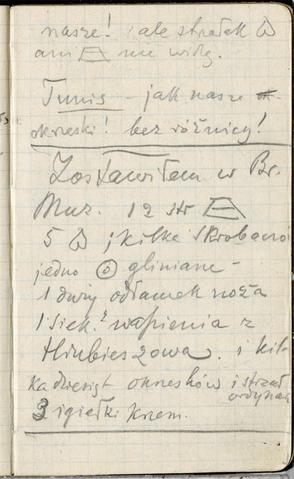 nasze! ale strzałek
ani nie widzę.
Tunis - jak nasze
okrzeski! bez różnicy!
Zostawiłem w Br.
Muz. 12 str
5 i kilka skrobaczo
jedno gliniane -
1 duży odłamek noża
1 siek. z wapienia z
Hrubieszowa. i kil-
kadziesiąt okresków i strzał
ordynar
3 igiełki krzem.